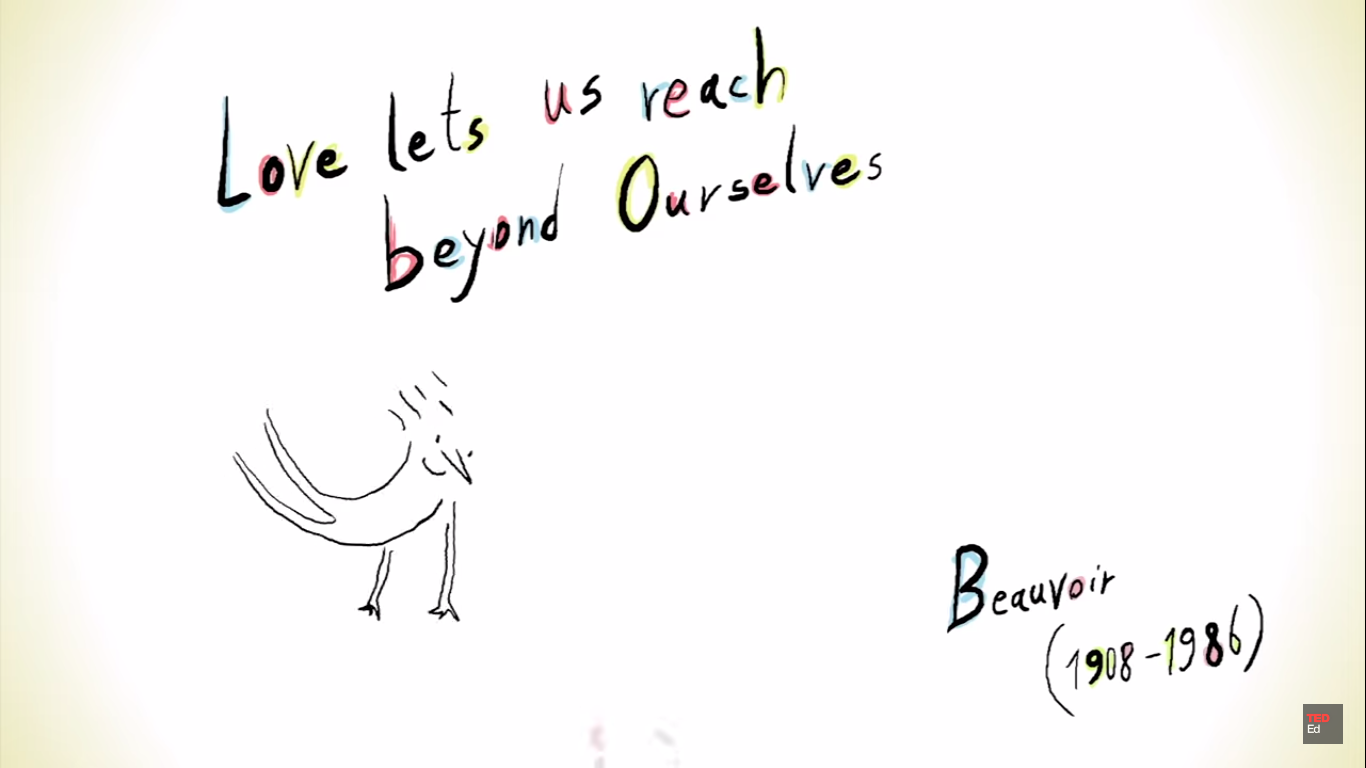 Love lets us reach
beyond Ourselves
Beauvoir
(1908-1986)
TED
Ed